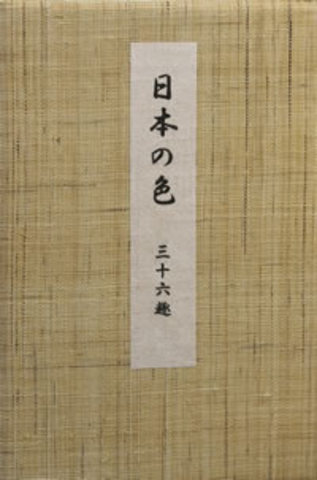 日本の色
三十六趣